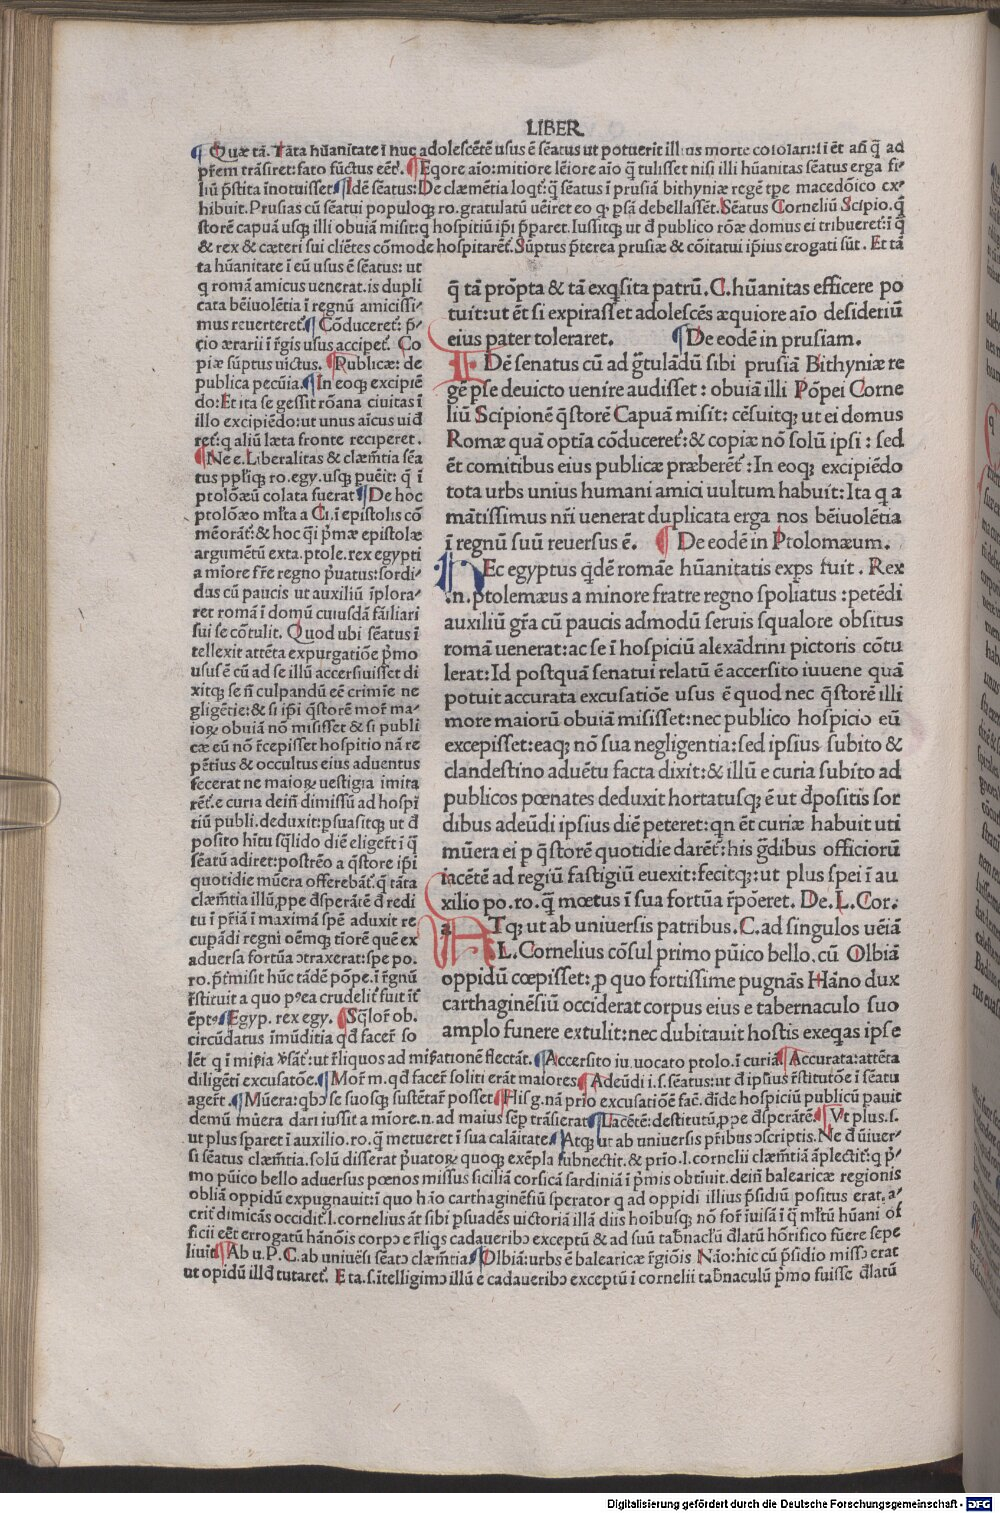 LIBER
¶ Quæ tā. Tāta hūanitate ī huc adolescētē usus ē sēatus ut potuerit illius morte cōsolari: ī ēt añ q̄ ad
pr̄em trāsiret: fato fūctus eēt. ¶ Eqore aīo: mitiore lēiore aīo q̄ tulisset nisi illi hūanitas sēatus erga fi-
liū p̄stita īnotuisset ¶ Idē sēatus: De clæmētia loqt̄: q̄ sēatus ī prusiā bithyniæ regē tpe macedōico ex-
hibuit. Prusias cū sēatui populoq; ro. gratulatū uēiret eo q; psā debellasset. Sēatus Corneliū Scipio. q̄
storē capuā usq; illi obuiā misit: q hospitiū ip̄i p̄paret. Iussitq; ut đ publico rōæ domus ei tribueret: ī q̄
& rex & cæteri sui cliētes cōmode hospitarēt. Sūptus p̄terea prusiæ & cōitatui ip̄ius erogati sūt. Et tā
ta hūanitate ī eū usus ē sēatus: ut
q romā amicus uenerat. is dupli
cata bēiuolētia ī regnū amicissi-
mus reuerteret̄ ¶ Cōduceret̄: p̄-
cio ærarii ī r̄gis usus accipet̄. Co
piæ sūptus uictus. ¶ Publicæ: de
publica pecūia. ¶ In eoq; excipiē
do: Et ita se gessit rōana ciuitas ī
illo excipiēdo: ut unus aīcus uid
ret̄: q aliū læta fronte reciperet.
¶ Ne e. Liberalitas & clæm̄tia sēa
tus pp̄liq; ro. egy. usq; puēit: q̄ ī
ptolōæū colata fuerat ¶ De hoc
ptolōæo ml̄ta a Ci. ī epistolis cō
mēorāt̄: & hoc q̄i p̄mæ epistolæ
argumētū exta. ptole. rex egypti
a mīore fr̄e regno p̄uatus: sordi-
dus cū paucis ut auxiliū īplora-
ret romā ī domū cuiusdā fāiliari
sui se cōtulit. Quod ubi sēatus ī
tellexit attēta expurgatiōe p̄mo
usus ē cū ad se illū accersiuisset di
xitq; se n̄ culpandū eē crimīe ne
gligētiæ: & si ip̄i q̄storē mor̄ ma-
ioꝝ obuiā nō misisset & si publi
cæ eū nō r̄cepisset hospitio nā re
pētius & occultus eius aduentus
fecerat ne maioꝝ uestigia imita
rēt̄. e curia deiñ dimissū ad hospi
tiū publi. deduxit: psuasitq; ut đ
posito hītu sq̄lido diē eliger̄t ī q̄
sēatū adiret: postrēo a q̄store ip̄i
quotidie mūera offerebāt̄. q̄ tāta
clæm̄tia illū, ꝓpe đsperātē đ redi
tu ī pr̄iā ī maximā spē aduxit re
cupādi regni oēmq; tīorē quē ex
aduersa fortūa ↄtraxerat: spe po.
ro. p̄t̄misit hūc tādē pōpe. ī r̄gnū
r̄stituit a quo pꝰea crudelit̄ fuit īt̄
ēptꝰ ¶ Egyp. rex egy. ¶ Sq̄lor̄ ob.
circūdatus īmūditia qđ facer̄ so
q̄ tā prōpta & tā exq̄sita patrū. C. hūanitas efficere po
tuit: ut ēt si expirasset adolescēs æquiore aīo desideriū
eius pater toleraret. ¶ De eodē in prusiam.
I Dē senatus cū ad g̃tulādū sibi prusiā Bithyniæ re
gē pse deuicto uenire audisset: obuiā illi Pōpei Corne
liū Scipionē q̄storē Capuā misit: cēsuitq; ut ei domus
Romæ quā optīa cōduceret̄: & copiæ nō solū ipsi: sed
ēt comitibus eius publicæ præberēt̄: In eoq; excipiēdo
tota urbs unius humani amici uultum habuit: Ita q a
mātissimus nr̄i uenerat duplicata erga nos bēiuolētia
ī regnū suū reuersus ē. ¶ De eodē in Ptolomæum.
N Ec egyptus q̄dē romāe hūanitatis exps fuit. Rex
.n. ptolemæus a minore fratre regno spoliatus: petēdi
auxiliū gr̄a cū paucis admodū seruis squalore obsitus
romā uenerat: ac se ī hospiciū alexādrini pictoris cōtu
lerat: Id postquā senatui relatū ē accersito iuuene quā
potuit accurata excusatiōe usus ē quod nec q̄storē illi
more maiorū obuiā misisset: nec publico hospicio eū
excepisset: eaq; nō sua negligentia: sed ipsius subito &
clandestino aduētu facta dixit: & illū e curia subito ad
publicos pœnates deduxit hortatusq; ē ut đpositis sor
dibus adeūdi ipsius diē peteret: qn ēt curiæ habuit uti
mūera ei p q̄storē quotidie darēt̄: his g̃dibus officiorū
iacētē ad regiū fastigiū euexit: fecitq;: ut plus spei ī au
xilio po. ro. q̄ mœtus ī sua fortūa r̄pōeret. De. L. Cor.
A Tq; ut ab uniuersis patribus. C. ad singulos uēiā
L. Cornelius cōsul primo pūico bello. cū Olbiā
oppidū cœpisset: ꝓ quo fortissime pugnās Hāno dux
carthaginēsiū occiderat corpus eius e tabernaculo suo
amplo funere extulit: nec dubitauit hostis exeqas ipse
lēt q ī mis̄ia v̄sāt̄: ut r̄liquos ad mis̄ationē flectāt. ¶ Accersito iu. uocato ptolo. ī curiā ¶ Accurata: attēta
diligēti excusatōe. ¶ Mor̄ m. qđ facer̄ soliti erāt maiores ¶ Adeūdi i. s. sēatus: ut đ ipsius r̄stitutōe ī sēatu
ager̄t. ¶ Mūera: qbↄ se suosq; sustētar̄ posset ¶ His g. nā prīo excusatiōē faē. đīde hospiciū publicū pauit
demū mūera dari iussit a mīore. n. ad maius sēp trāsierat ¶ Iacētē: destitutū, ꝓpe đsperātē. ¶ Vt plus. s.
ut plus sparet ī auxilio. ro. q̄ metueret ī sua calāitate ¶ Atq; ut ab uniuersis pr̄ibus ↄscriptis. Ne đ ūiuer-
si sēatus clæm̄tia. solū disserat p̄uatoꝝ quoq; exēpla subnectit. & prīo. l. cornelii clæm̄tiā āplectit̄: q p̄-
mo pūico bello aduersus pœnos missus siciliā corsicā sardiniā ī p̄mis obtīuit. deiñ balearicæ regionis
obliā oppidū expugnauit: ī quo hāo carthaginēsiū īperator q ad oppidi illius p̄sidiū positus erat. a-
crit̄ dimicās occidit̄. l. cornelius āt sibi psuadēs uictoriā illā diis hoibusq; nō for̄ īuisā ī q̄ ml̄tū hūani of
ficii eēt errogatū hānōis corpo e r̄liqs cadaueribↄ exceptū & ad suū tab̄nacl̄u đlatū hōrifico fūere sepe
liuit ¶ Ab u. P. C. ab uniuēsi sēatↄ clæm̄tia ¶ Olbiā: urbs ē balearicæ r̄giōis Nāo: hic cū p̄sidio missↄ erat
ut opidū illđ tutaret̄. Et a. s. ītelligimↄ illū e cadaueribↄ exceptū ī cornelii tab̄naculū p̄mo fuisse đlatū
Digitalisierung gefördert durch die Deutsche Forschungsgemeinschaft - DFG